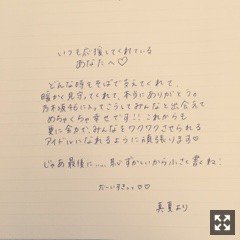 いつも応援してくれている
あなたへ♡
どんな時もそばで支えてくれて、
暖かく見守ってくれて、本当にありがとう。
乃木坂46に入ってこうしてみんなと出会えて
めちゃくちゃ幸せです!! これからも
更に全力で、みんなをワクワクさせられる
アイドルになれるように頑張ります♡
じゃあ最後に.....恥ずかしいから小さく書くね!
だーいすきっ♡♡
真夏より